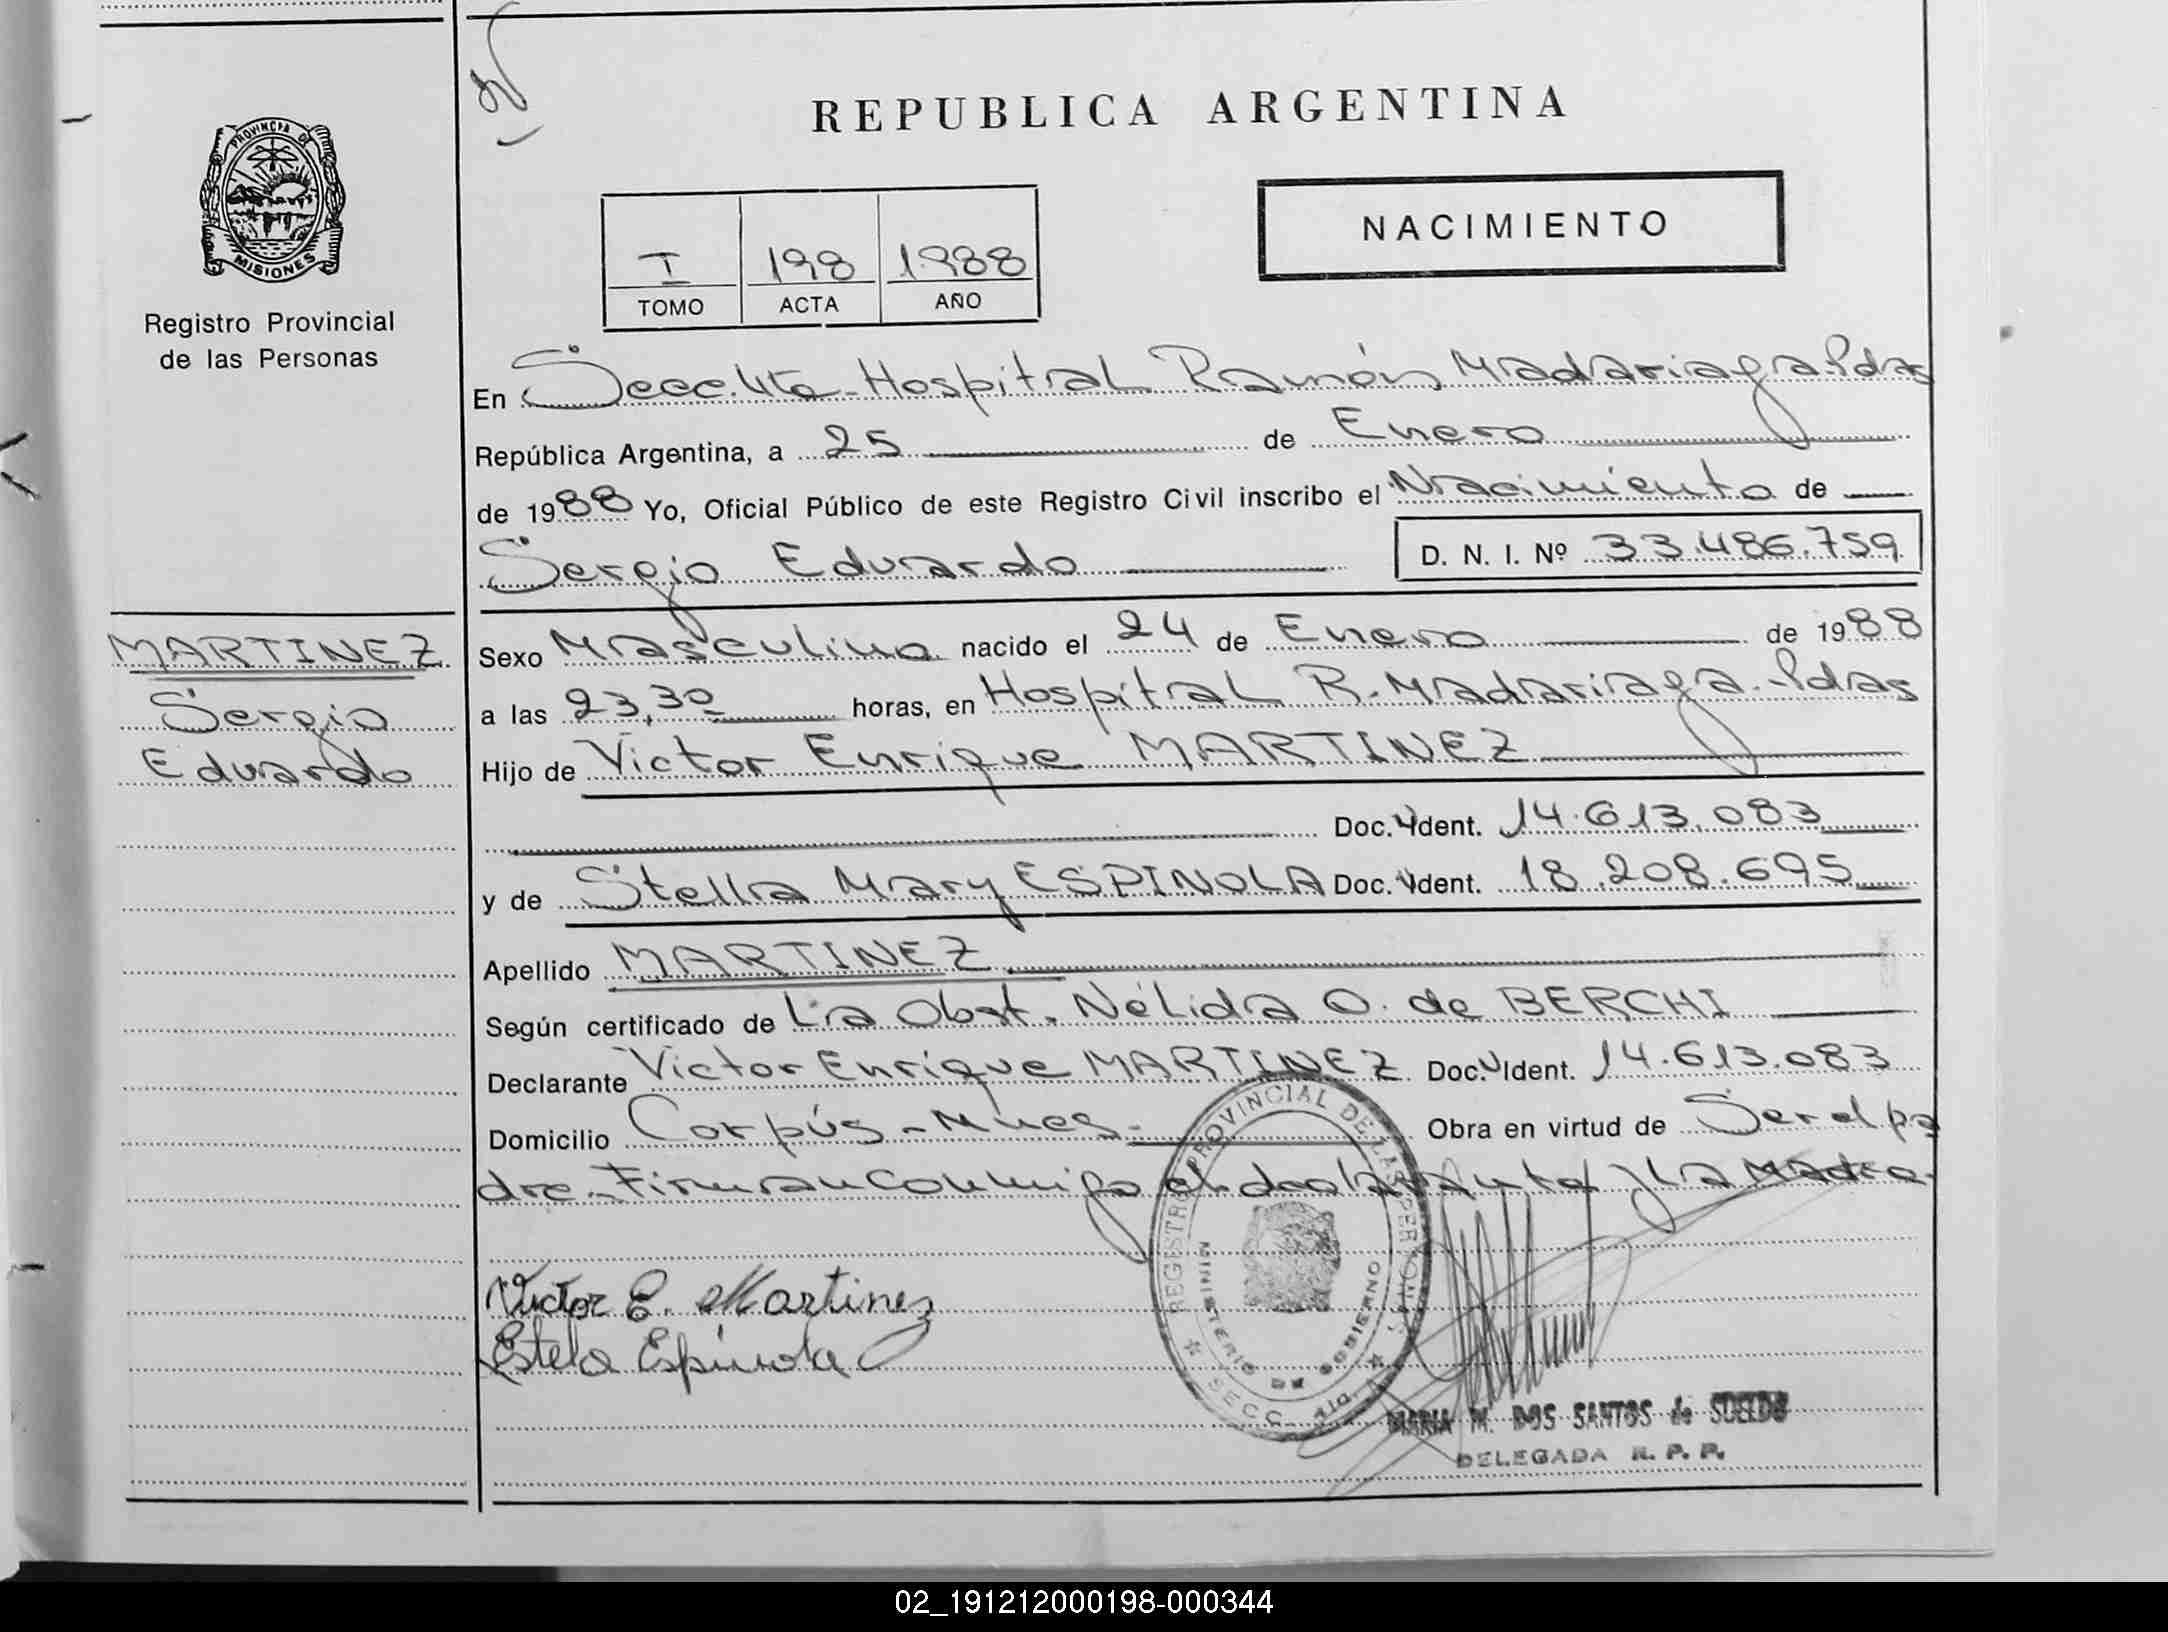 REPUBLICA ARGENTINA
PROVINCIA DE
MISIONES
Registro Provincial
de las Personas
NACIMIENTO
I 198 1988
TOMO ACTA AÑO
En Secc. 4ta - Hospital Ramón Madariaga. Pdas
República Argentina, a 25 de Enero
de 1988 Yo, Oficial Público de este Registro Civil inscribo el Nacimiento de
Sergio Eduardo D. N. I. Nº 33.486.759
MARTINEZ
Sergio
Eduardo
Sexo Masculino nacido el 24 de Enero de 1988
a las 23,30 horas, en Hospital R. Madariaga - Pdas
Hijo de Victor Enrique MARTINEZ
Doc. Ident. 14.613.083
y de Stella Mary ESPINOLA Doc. Ident. 18.208.695
Apellido MARTINEZ
Según certificado de La Obst. Nélida O. de BERCHI
Declarante Victor Enrique MARTINEZ Doc. Ident. 14.613.083
Domicilio Corpús - Mnes. Obra en virtud de Ser el pa
dre - Firman conmigo el declarante y la Madre -
Victor E. Martinez
Estela Espinola
REGISTRO PROVINCIAL DE LAS PERSONAS
MINISTERIO DE GOBIERNO
SECC. 4ta.
MARIA M. DOS SANTOS de SUELDO
DELEGADA R. P. P.
02_191212000198-000344